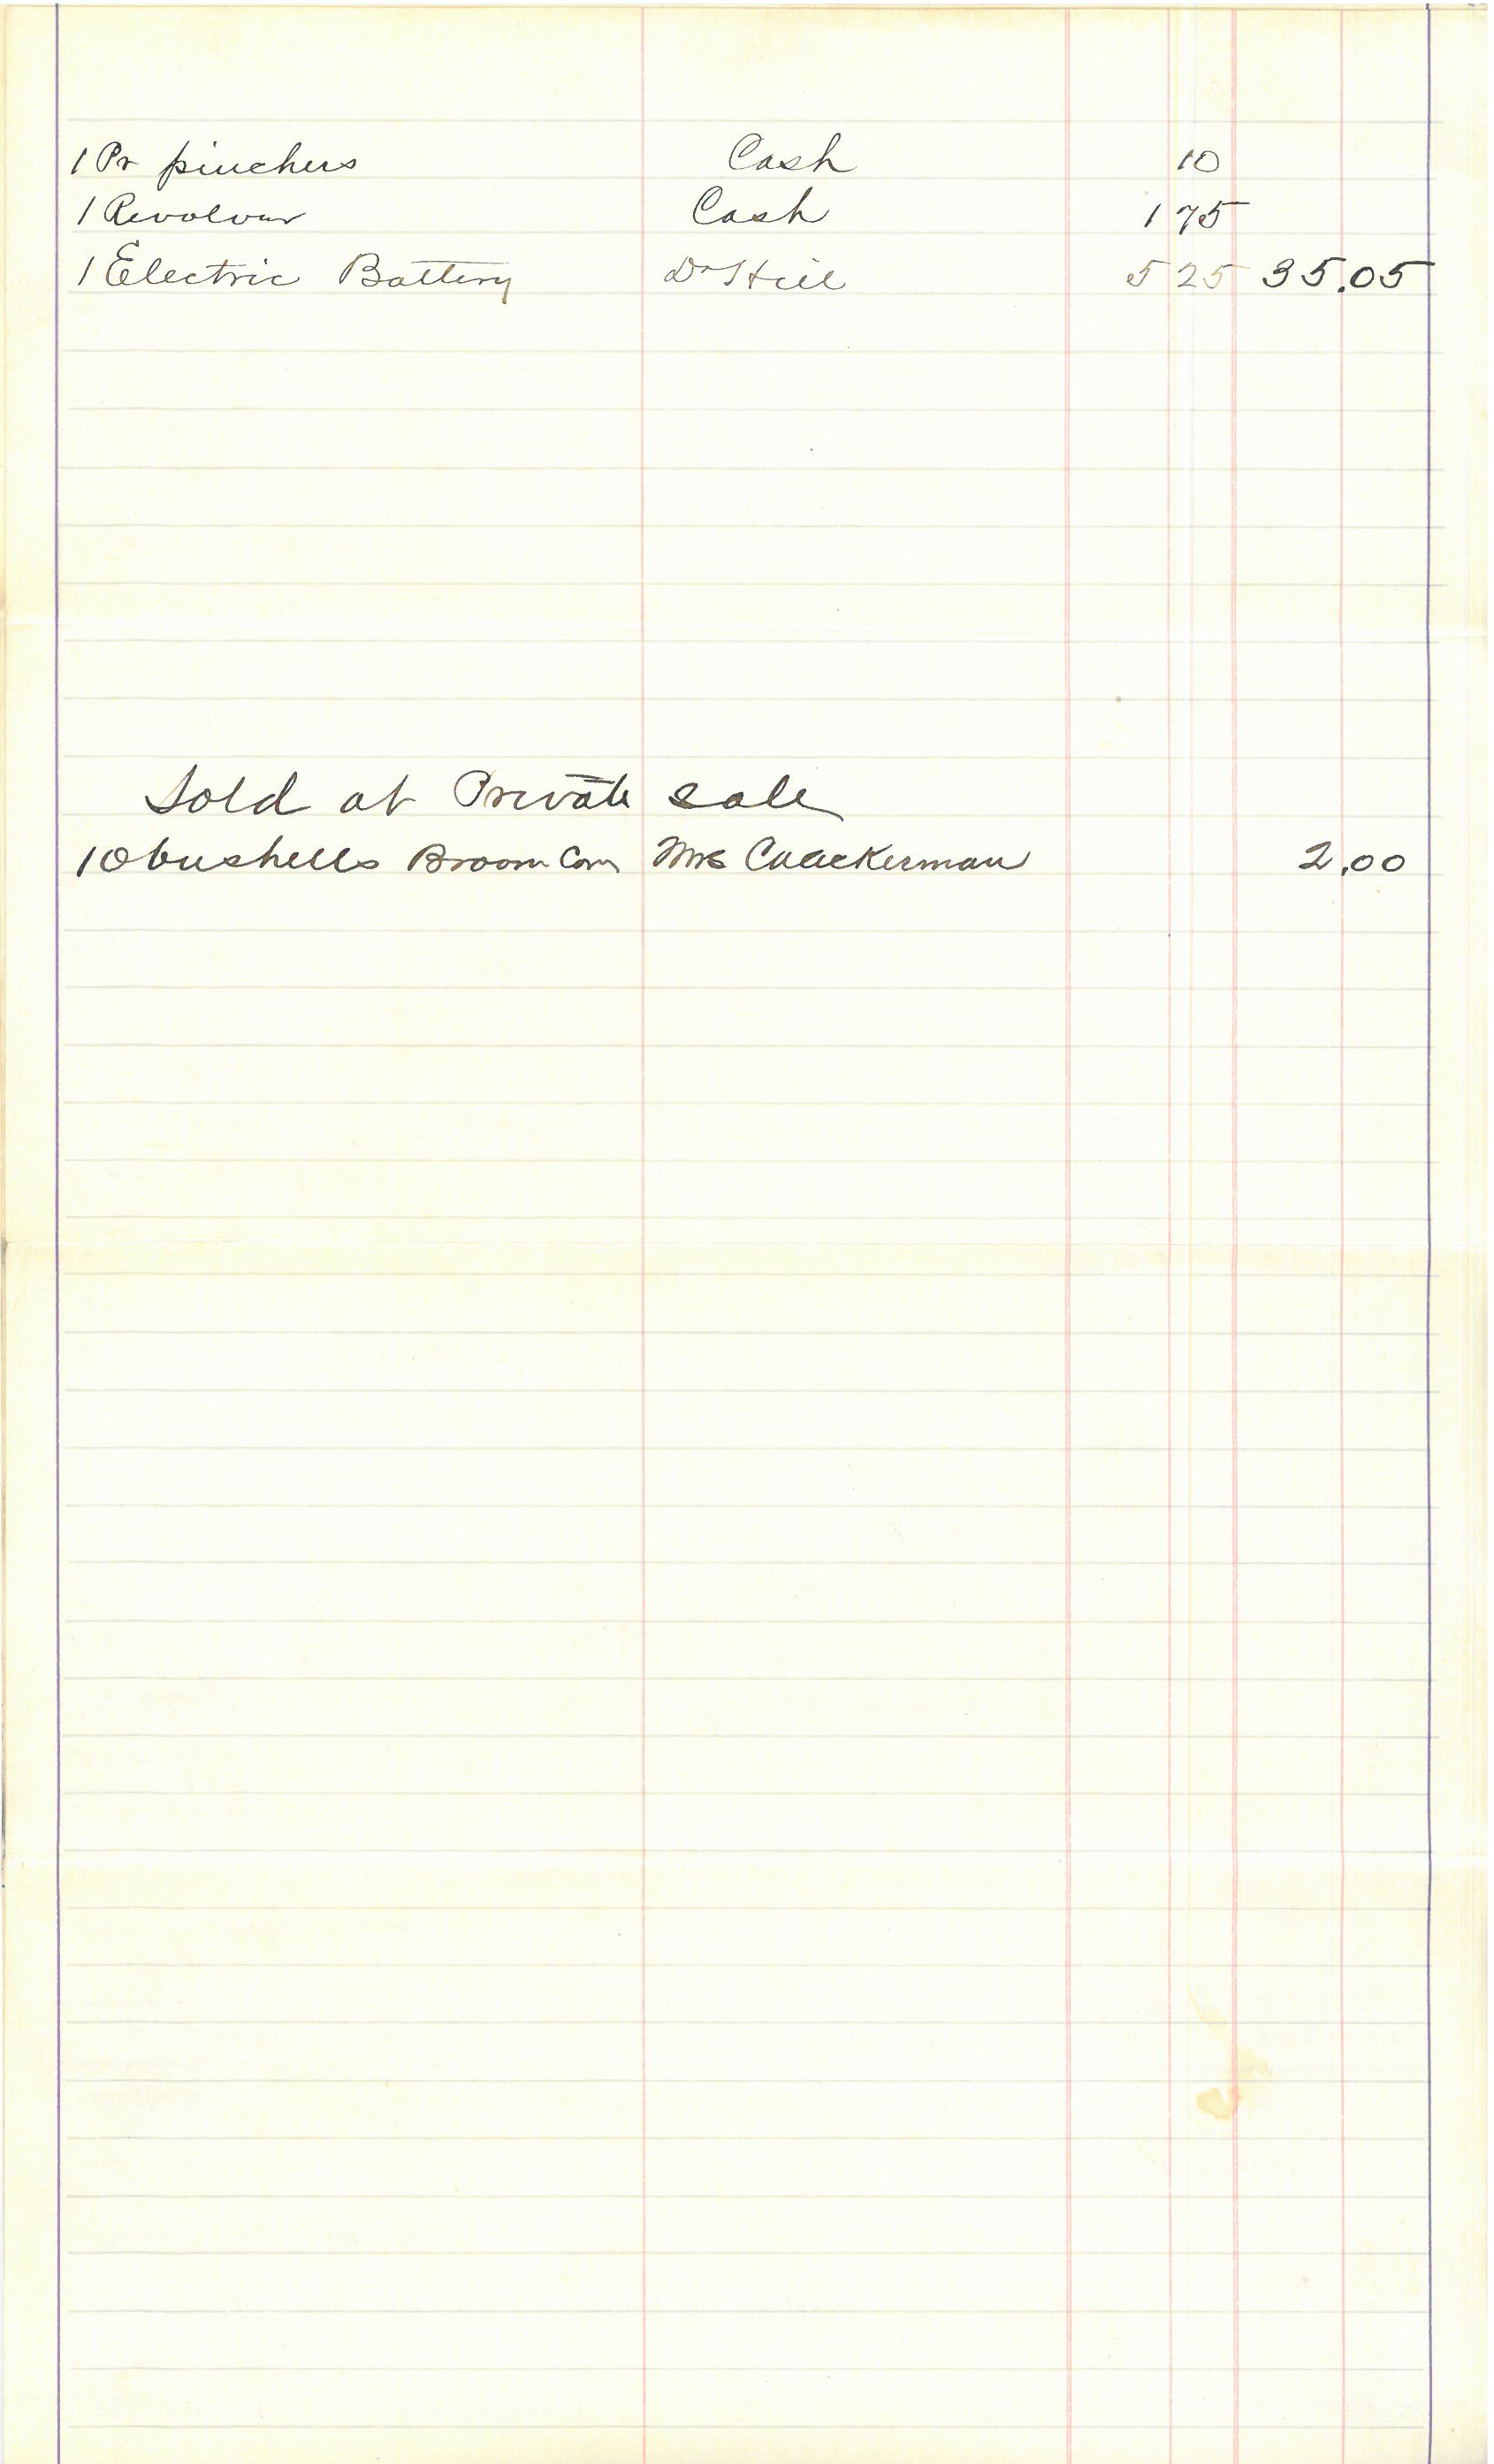 1 Pr pinchers Cash 10
1 Revolver Cash 1 75
1 Electric Battery Dr Hill 5 25 35.05
Sold at Private sale
10 bushells Broom Corn Mrs C A Ackerman 2.00